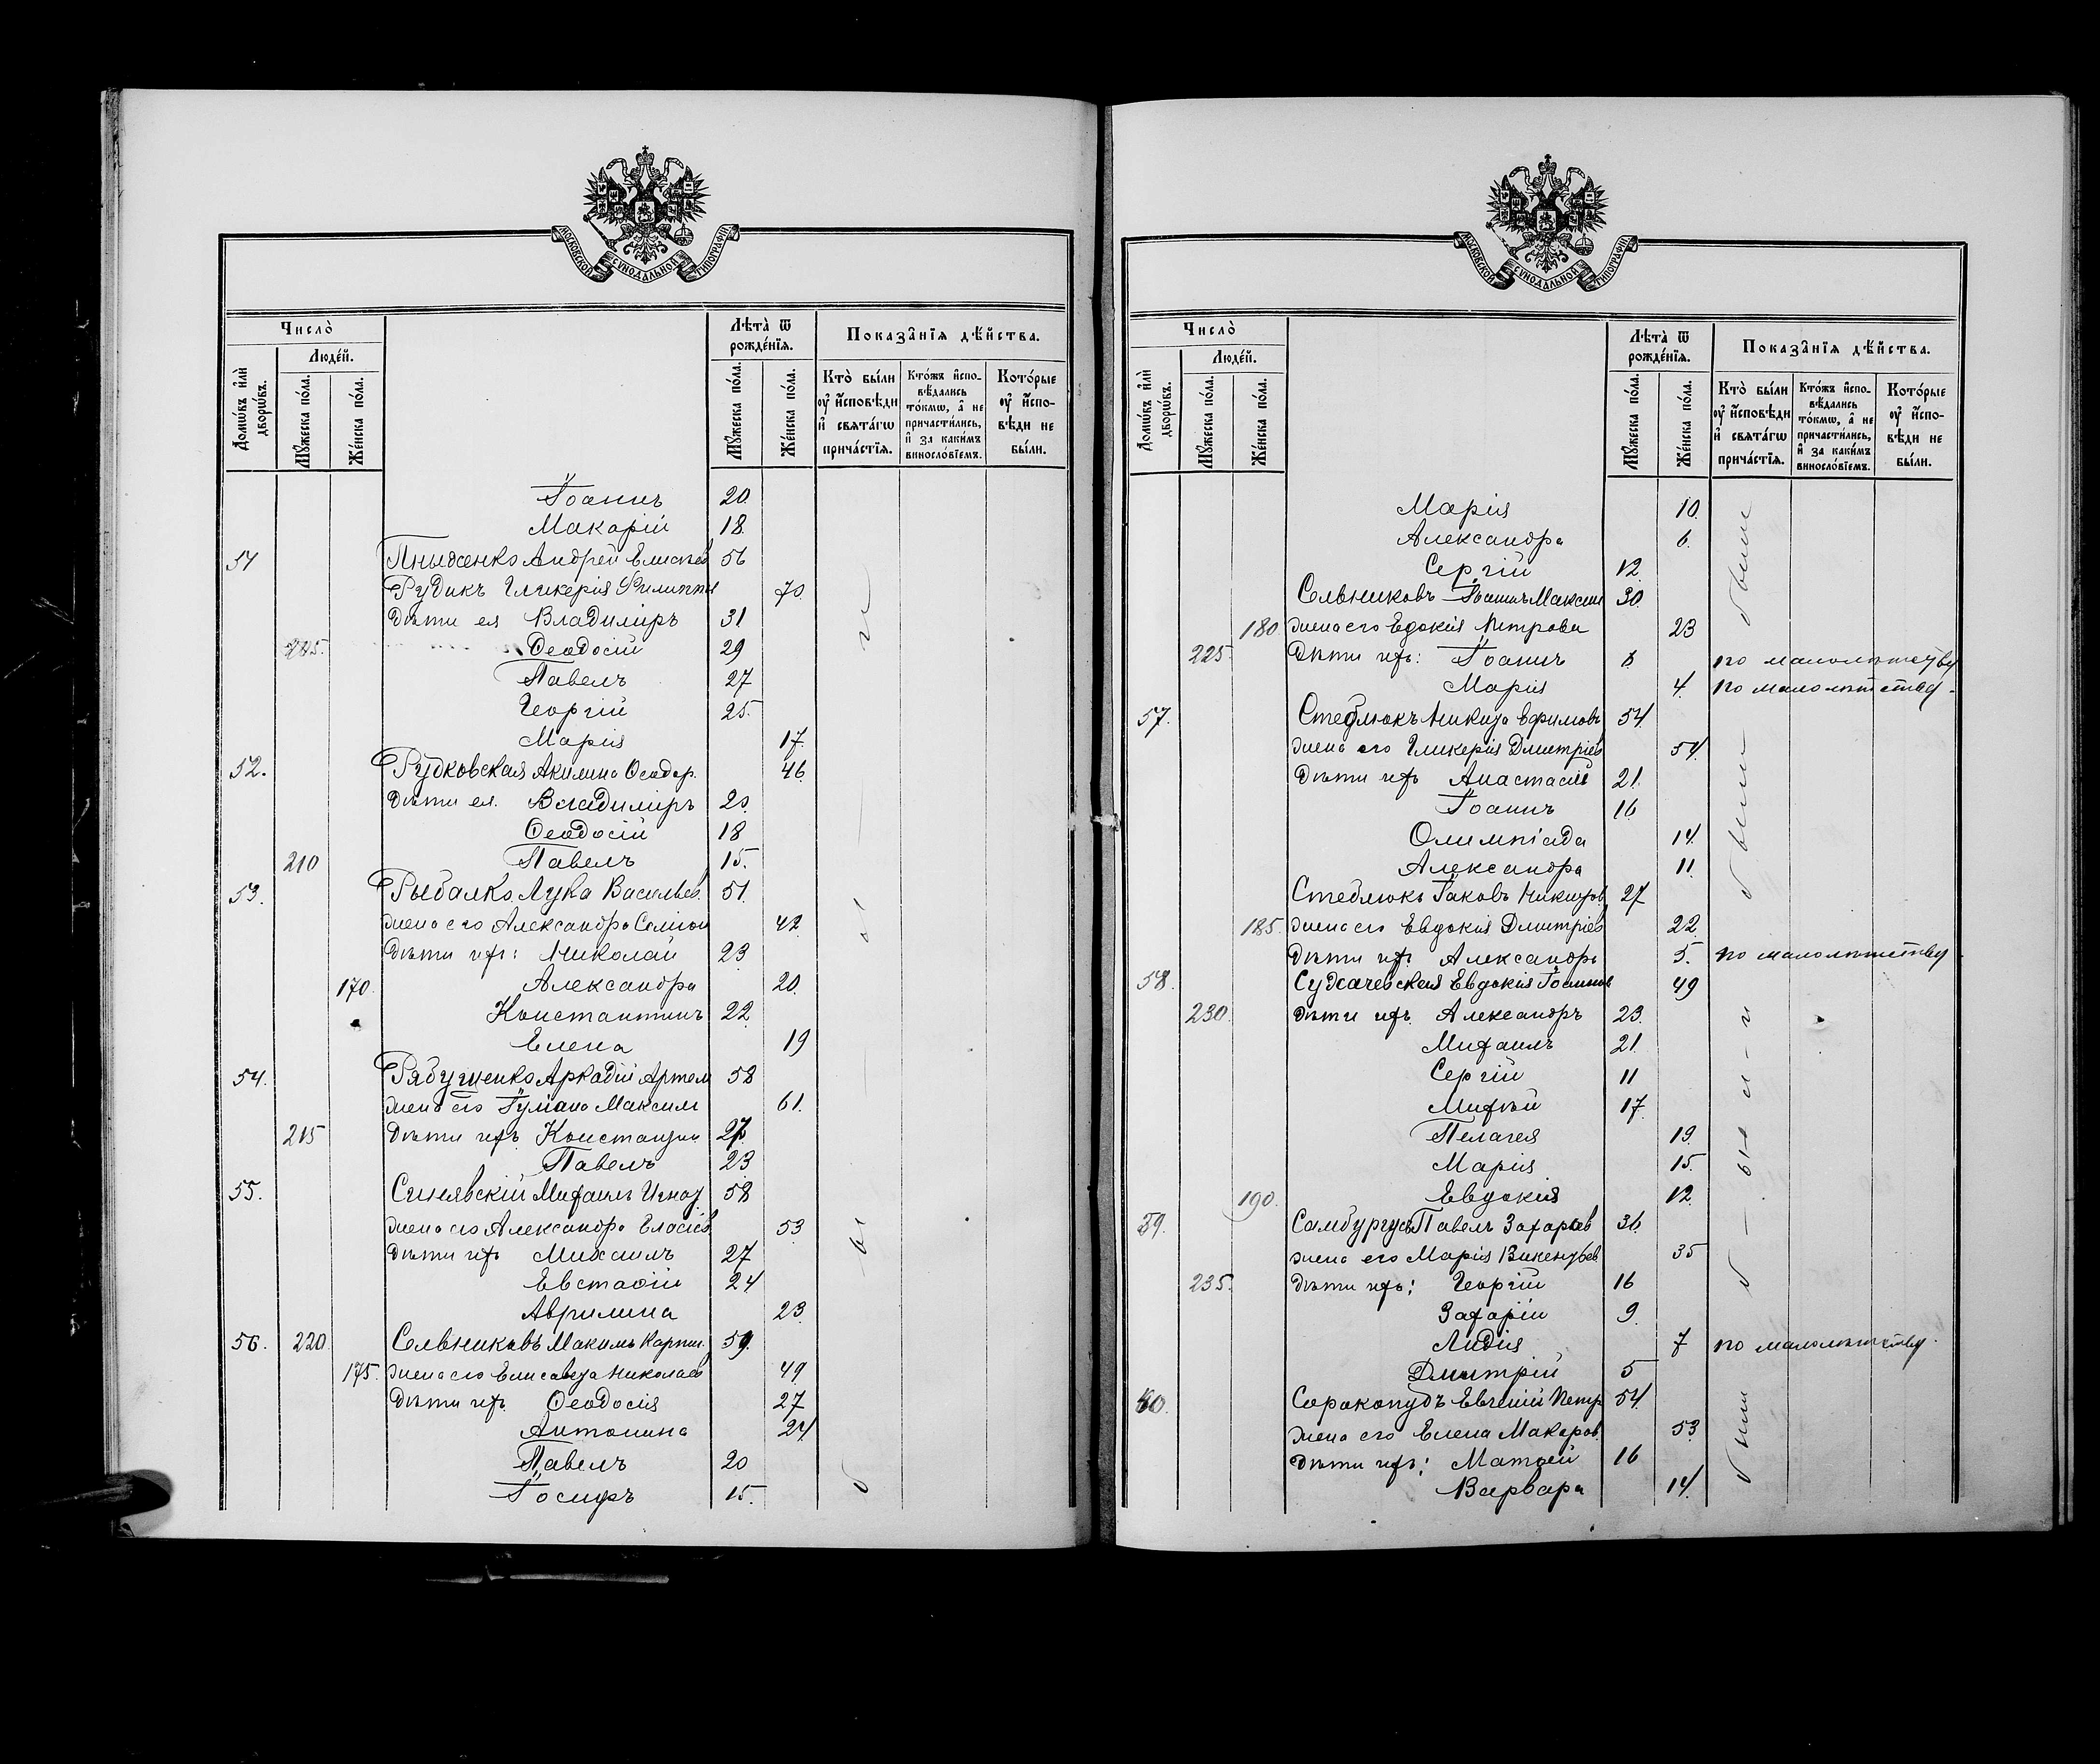 МОСКОВСКОЙ СѴНОДАЛЬНОЙ ТИПОГРАФІИ
Число̀
Домѡ́въ и҆лѝ дворѡ́въ.
Люде́й.
Мꙋ́жеска по́ла.
Же́нска по́ла.
Лѣта̀ ѿ рожде́нїѧ.
Мꙋ́жеска по́ла.
Же́нска по́ла.
Показа̑нїѧ дѣ́йства.
Кто̀ бы́ли оу҆ и҆сповѣди и҆ свѧта́гѡ прича́стїѧ.
Кто́жъ и҆спо- вѣдались то́кмѡ, а҆ не причасти́лись, и҆ за каки́мъ виносло́вїемъ.
Кото́рые оу҆ и҆спо- вѣди не бы́ли.
Іоаннъ 20.
Макарій 18.
51 Андрей Елисеев 56
Рудикъ Гликерія Филиппов 70.
Дѣти ея Владиміръ 31
205. Ѳеодосій 29
Павелъ 27
Георгій 25.
Марія 17.
52. Рудковская Акилина Ѳеодор. 46
Дѣти ея. Владиміръ 20.
Ѳеодосій 18
210 Павелъ 15.
53. Рыбалко Лука Васильев. 51.
жена его Александра Семіон 42
Дѣти ихъ: Николай 23
170. Александра 20.
Константинъ 22
Елена 19
54. Рябушенко Аркадій Артем 58
жена его Іуліана Максим 61.
215 Дѣти ихъ Константин 27.
Павелъ 23
55. Синявскій Михаилъ Игнат 58
жена его Александра Власіев. 53
Дѣти ихъ Михаилъ 27
Евстафій 24
Аврилина 23.
56. 220. Сельниковъ Макимъ Карпин. 59.
175. жена его Елисавета Николаев 49.
Дѣти ихъ Ѳеодосія 27
Антонина 24
Павелъ 20
Іосифъ 15.
МОСКОВСКОЙ СѴНОДАЛЬНОЙ ТИПОГРАФІИ
Число̀
Домѡ́въ и҆лѝ дворѡ́въ.
Люде́й.
Мꙋ́жеска по́ла.
Же́нска по́ла.
Лѣта̀ ѿ рожде́нїѧ.
Мꙋ́жеска по́ла.
Же́нска по́ла.
Показа̑нїѧ дѣ́йства.
Кто̀ бы́ли оу҆ и҆сповѣди и҆ свѧта́гѡ прича́стїѧ.
Кто́жъ и҆спо- вѣдались то́кмѡ, а҆ не причасти́лись, и҆ за каки́мъ виносло́вїемъ.
Кото́рые оу҆ и҆спо- вѣди не бы́ли.
Марія 10. были
Александра 6.
Сергій 12.
Сельниковъ Іоаннъ Максим 30.
180. жена его Евдокія Петрова 23
225. Дѣти ихъ: Іоаннъ 6 по малолѣтству
Марія 4. по малолѣтству.
57. Стеблюкъ Никита Ефимовъ 54. были
жена его Гликерія Дмитріев 54.
Дѣти ихъ Анастасій 21.
Іоаннъ 16
Олимпіада 14.
Александра 11.
Стеблюкъ Іаковъ Никитов. 27
185. жена его Евдокія Дмитріев 22.
Дѣти ихъ Александръ 5. по малолѣтству.
58. Сухачевская Евдокія Іоаннов 49
230. Дѣти ихъ. Александръ 23. были
Михаилъ 21.
Сергій 11
Михѣй 17.
Пелагея 19.
Марія 15.
190. Евдокія 12.
59. Павелъ Захарьев 36.
жена его Марія Викентьев. 35
235. Дѣти ихъ: Георгій 16
Захарій 9.
Лидія 7 по малолѣтству.
Дмитрій 5
60. Сорокопудъ Евгеній Петр 54. были
жена его Елена Макаров. 53.
Дѣти ихъ: Матѳей 16
Варвара 14.